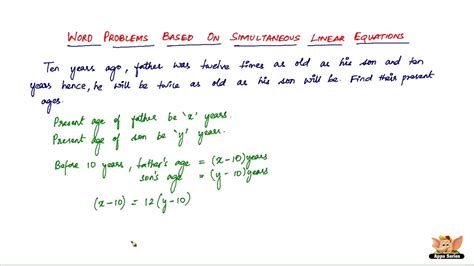 WORD PROBLEMS BASED ON SIMULTANEOUS LINEAR EQUATIONS
Ten years ago, father was twelve times as old as his son and ten
years hence, he will be twice as old as his son will be. Find their present
ages.
Present age of father be 'x' years.
Present age of son be 'y' years.
Before 10 years, father's age = (x-10) years
son's age = (y-10) years
(x-10) = 12(y-10)
Appu Series